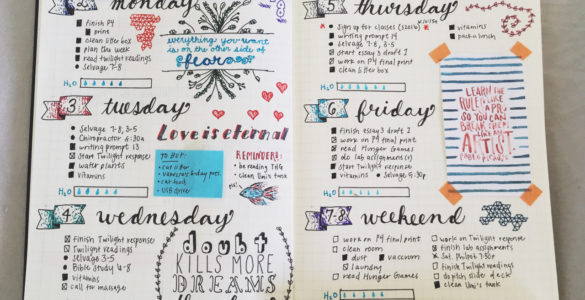 2
monday
finish P4
print
clean litter box
plan the week
read twilight readings
selvage 7-8
H2O
everything you want
is on the other side of
fear
3
tuesday
Selvage 7-8, 3-5
Chiropractor 6:30a
writing prompt 13
Start Twilight response
water plants
Vitamins
H2O
Love is eternal
TO BUY:
cat litter
car hook
USB drive
REMINDERS:
be reading
clean Uni's tank
4
wednesday
finish Twilight response
Twilight readings
selvage 3-5
Bible Study 6-8
vitamins
call for massage
doubt
KILLS MORE
DREAMS
5
thursday
Sign up for classes
writing prompt 14
selvage 7-8, 3-5
Start essay 3 draft 1
work on P4 final print
clean litter box
vitamins
pack a lunch
H2O
6
friday
finish essay 3 draft 1
work on P4 final print
read Hunger Games
do lab assignment(s)
start Twilight response
vitamins
Selvage
H2O
LEARN THE
RULES LIKE
A PRO,
SO YOU CAN
BREAK THEM
LIKE AN
ARTIST.
PABLO PICASSO
7-8
weekend
work on P4 final print
clean room
dust
vaccum
laundry
read Hunger Games
work on Twilight response
finish lab assignments
finish Twilight readings
clean Uni's tank